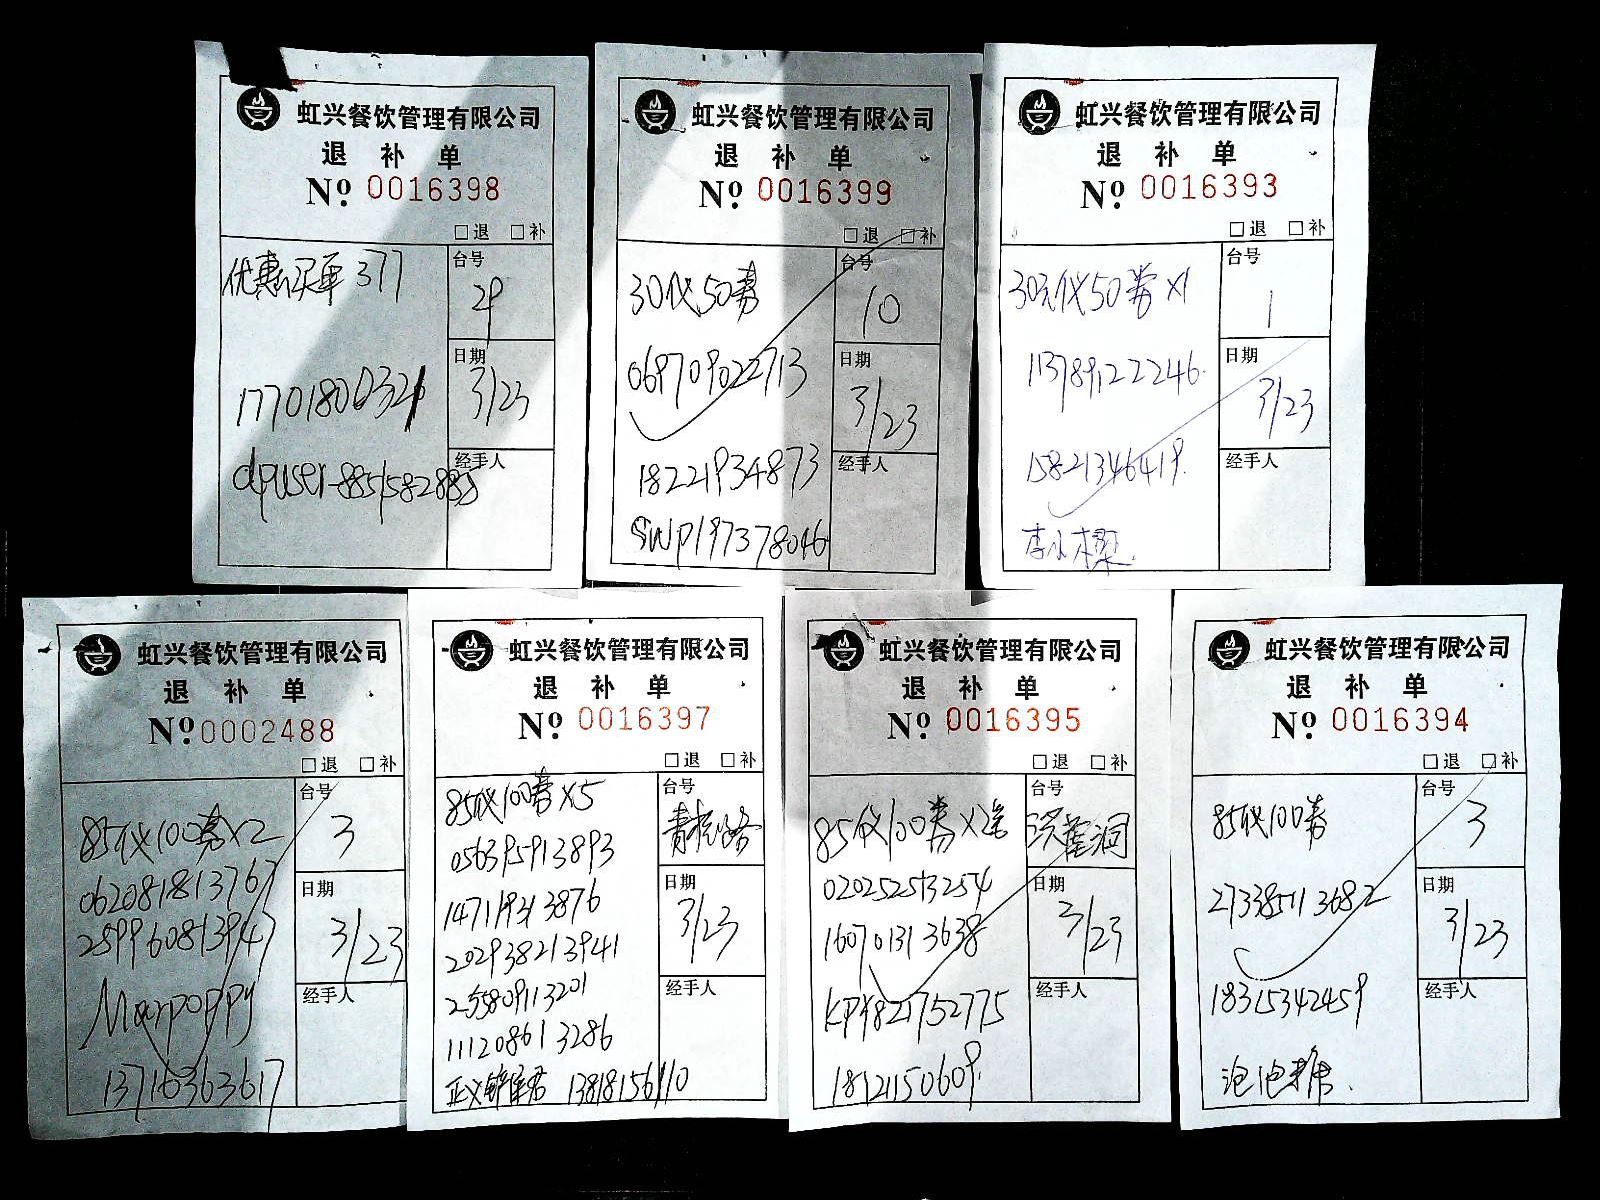 虹兴餐饮管理有限公司
退 补 单
Nº 0016398
□退 □补
优惠买单 377
台号
29
日期
3/23
17701800321
经手人
dpuser-8851582885
虹兴餐饮管理有限公司
退 补 单
Nº 0016399
□退 □补
30代50券
台号
10
069709022713
日期
3/23
18221934873
经手人
SWP197378046
虹兴餐饮管理有限公司
退 补 单
Nº 0016393
□退 □补
30元代50券×1
台号
1
113789122246
日期
3/23
15821346419
经手人
李小樑
虹兴餐饮管理有限公司
退 补 单
Nº 0002488
□退 □补
85代100券×2
台号
3
062081813767
日期
3/23
259960813947
经手人
Marpoppy
13716363617
虹兴餐饮管理有限公司
退 补 单
Nº 0016397
□退 □补
85代100券×5
台号
056395913893
日期
3/23
147119313876
202938213941
255809113201
经手人
111208613286
13818156110
虹兴餐饮管理有限公司
退 补 单
Nº 0016395
□退 □补
85代100券×2
台号
020252513254
日期
3/23
160701313638
经手人
KPY821752775
18121150609
虹兴餐饮管理有限公司
退 补 单
Nº 0016394
□退 □补
85代100券
台号
3
273385113682
日期
3/23
18315342459
经手人
泡泡糖